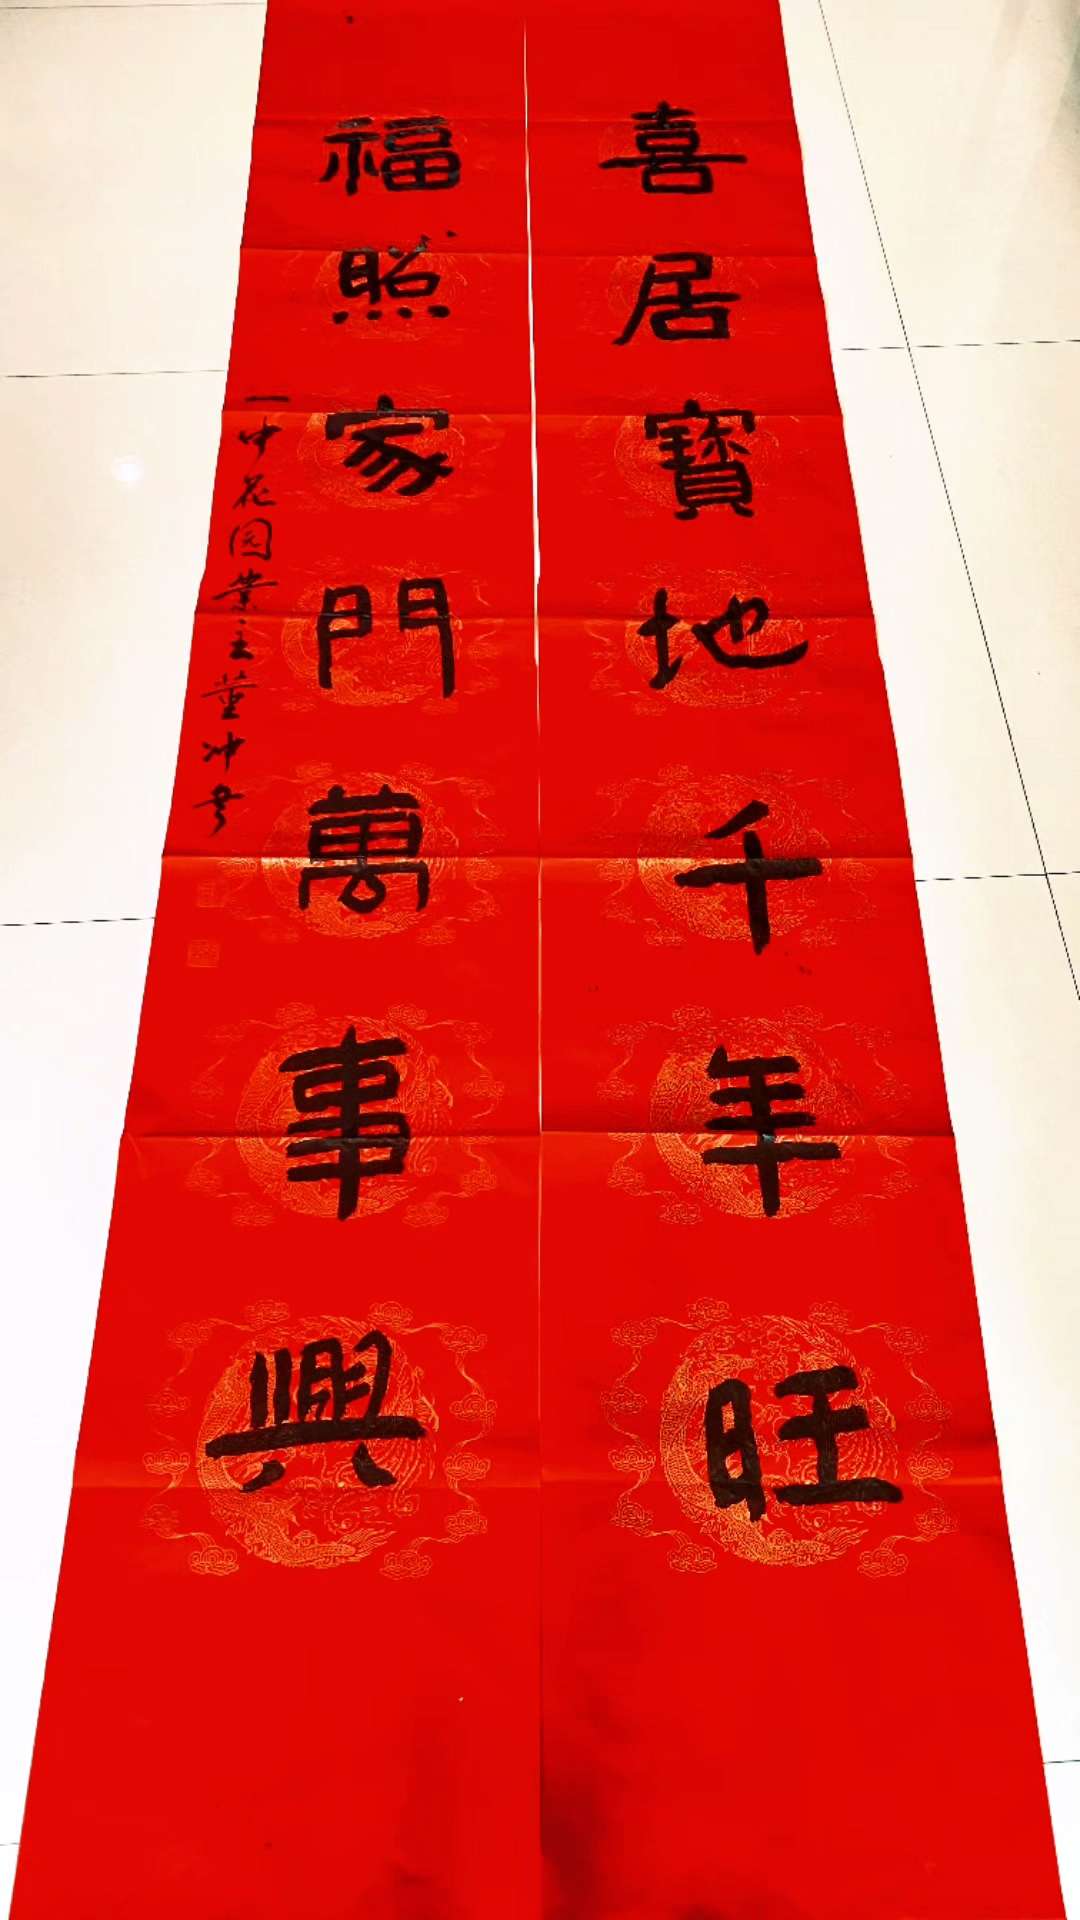 喜居寶地千年旺
福照家門萬事興
一中花园業主董冲书